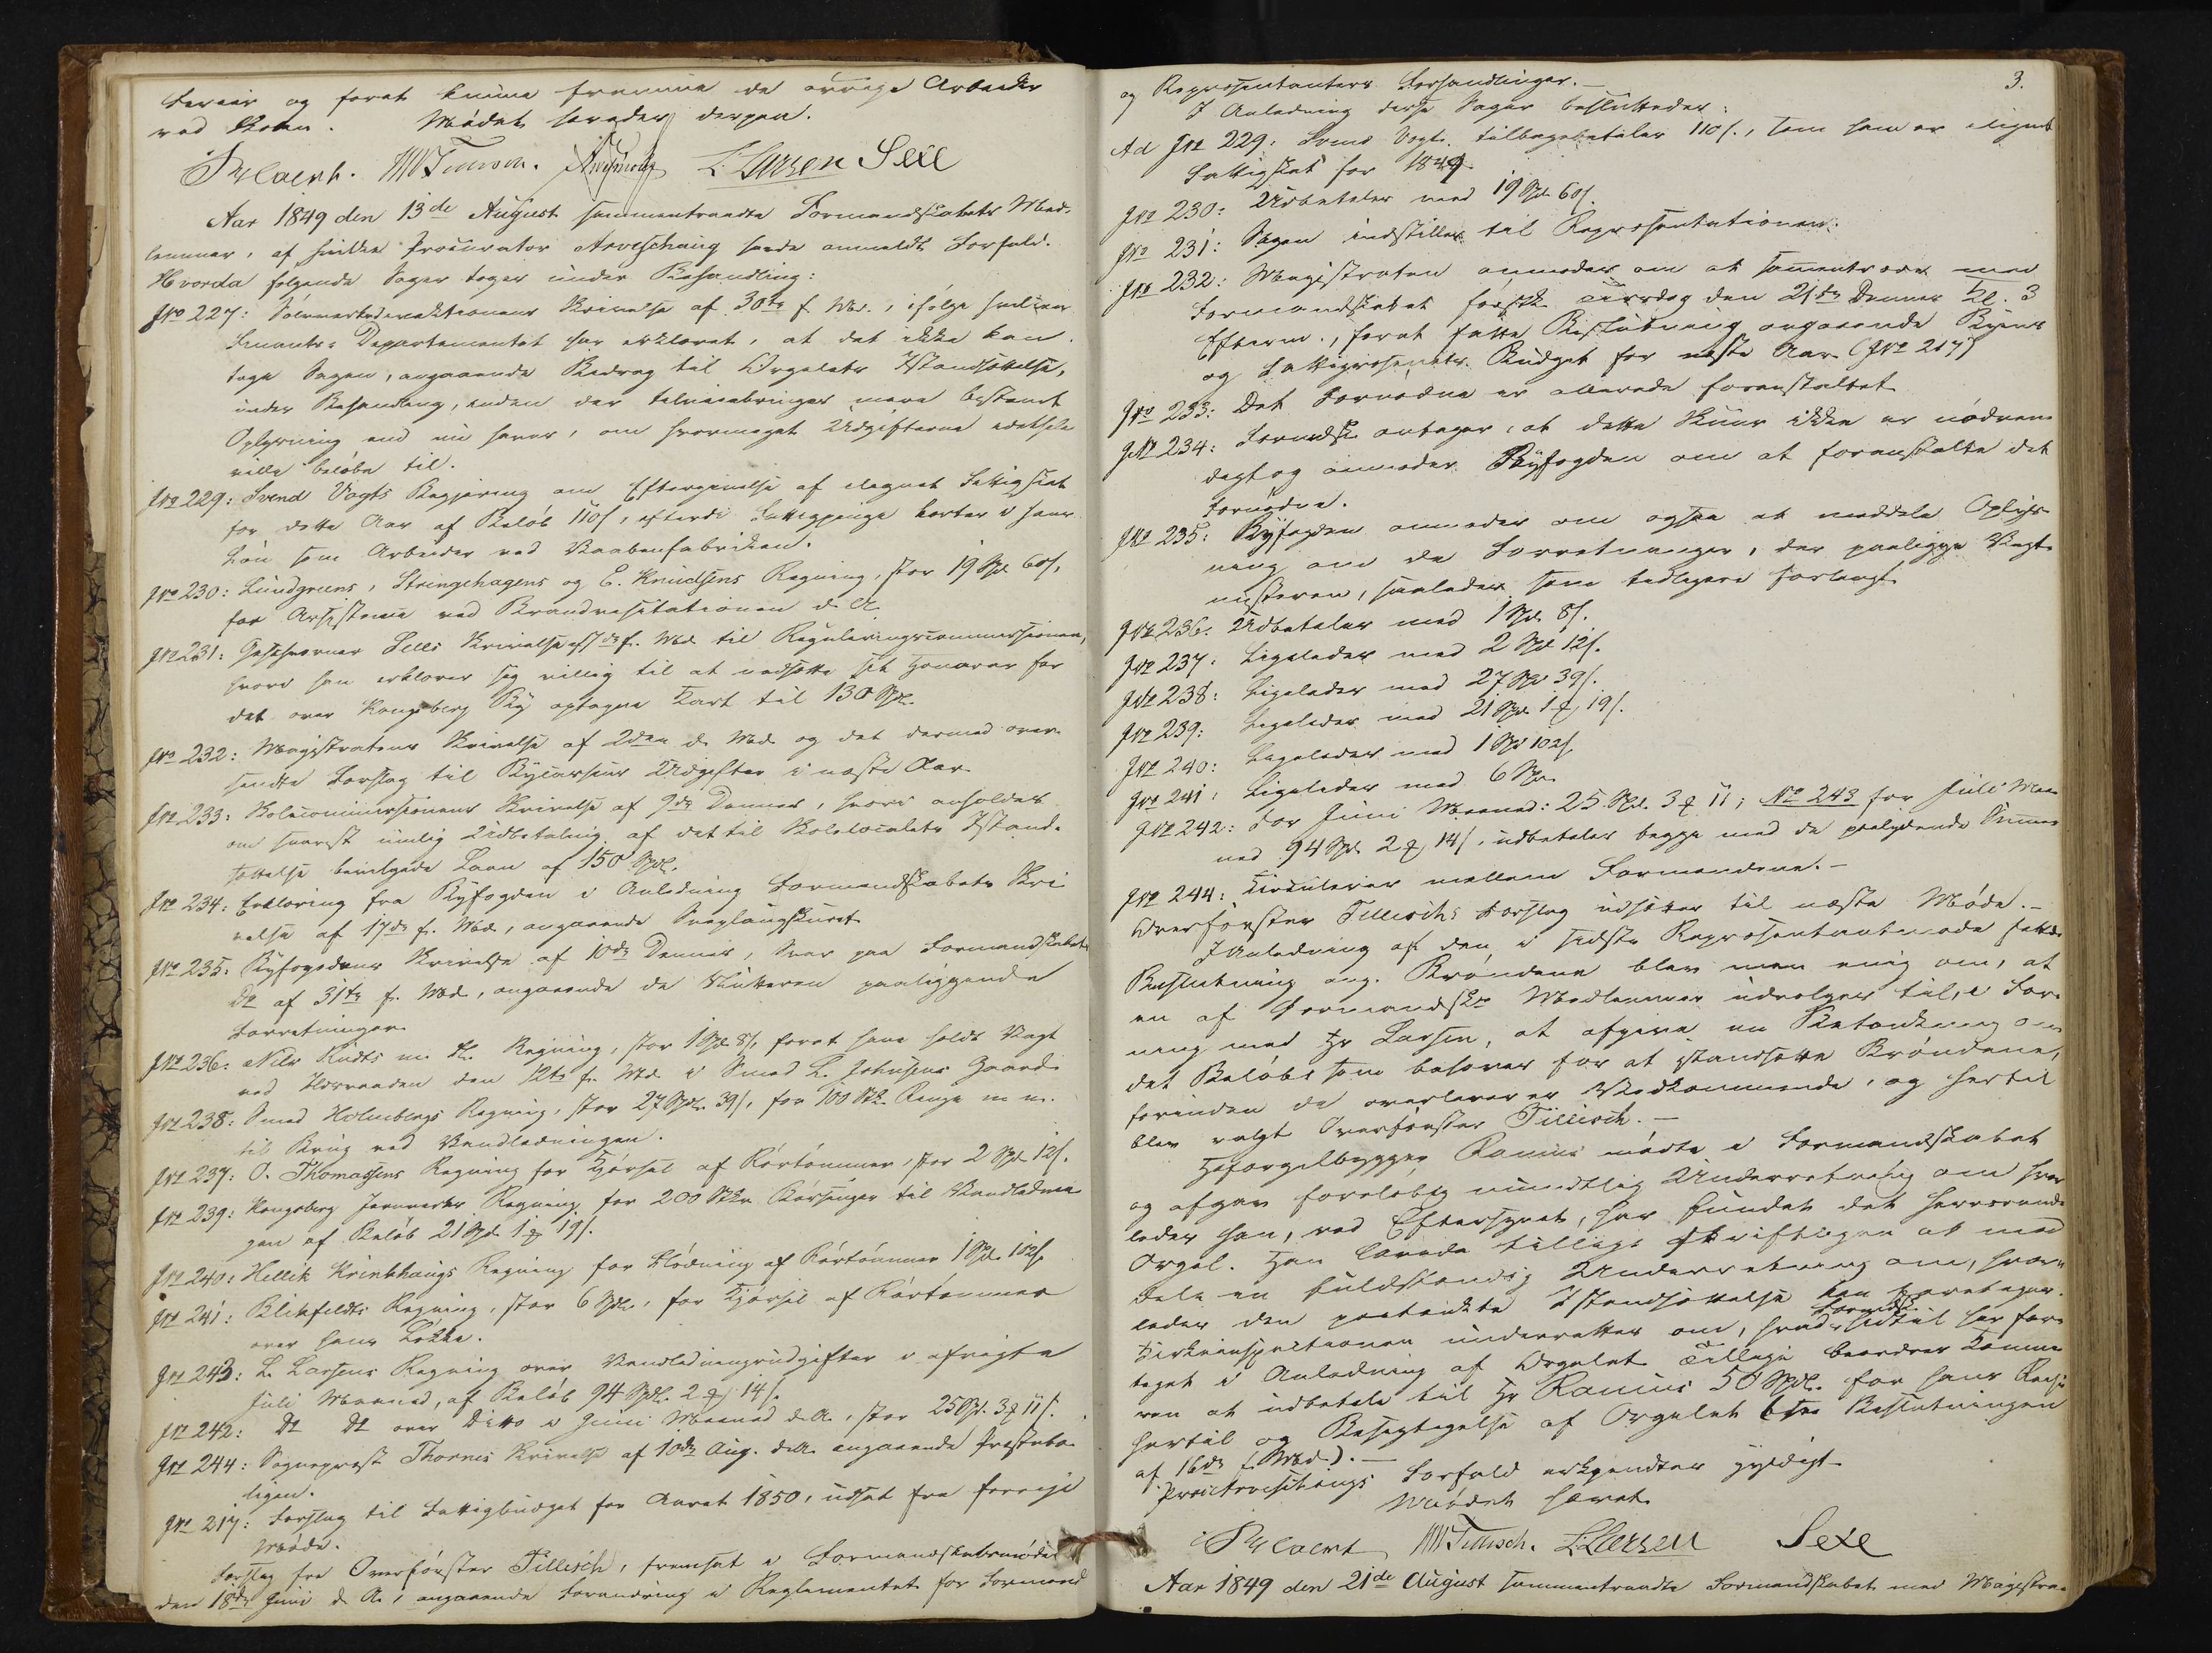 og forat kunne fremme de øvrige Arbeider
ved Mødet hævedes derpaa.
L. Larsen Sexe
Aar 1849 den 13de August sammentraadte Formandskabets Med-
lemmer, af hvilke Procurator Arveschoug havde anmeldt Forfald.
Hvorda følgende Sager toges under Behandling:
JNo 227: Sølvværksdirektionens Skrivelse af 30te f. Md., ifølge hvilken
Finants-Departementet har erklæret, at det ikke kan
tage Sagen, angaaende Bidrag til Orgelets Istandsættelse,
under Behandling, inden der tilveiebringes mere bestemt
Oplysning end nu haves, om hvormeget Udgifterne
ville beløbe til.
JNo 229: Svend Vogts Begjæring om Eftergivelse af elignet Fattigskat
for dette Aar af Beløb 110 s, efterdi Fattigpenge kortes i hans
Løn som Arbeider ved Vaabenfabriken.
JNo 230: Lundgreens, Stringehagens og E. Knudsens Regning, stor 19 Spd 60 s,
for Assistence ved Brandvisitationen d. A.
JNo 231: Geschworner Sells Skrivelse af f. Md. til Reguleringscommissionen,
hvori han erklærer sig villig til at nedsætte sit Honorar for
det over Kongsberg By optagne Kart til 130 Spd.
JNo 232: Magistratens Skrivelse af 2den d. Md. og det dermed over-
sendte Forslag til Bycassens Udgifter i næste Aar.
JNo 233: Skolecommissionens Skrivelse af 9de Dennes, hvori anholdes
om snarest mulig Udbetaling af det til Skolelocalets Istand-
sættelse bevilgede Laan af 150 Spd.
JNo 234: Erklæring fra Byfogden i Anledning Formandskabets Skri-
velse af 17de f. Md., angaaende
JNo 235: Byfogdens Skrivelse af 10de Dennes, Svar paa Formandskabets
Do af 31te f. Md., angaaende de paaliggende
Forretninger.
JNo 236: Nils Rudts m. Fl. Regning, stor 1 Spd 8 s, forat have holdt Vagt
ved Ildsvaaden den 12te f. Md. i Smed L. Johnsens Gaard.
JNo 238: Smed Holmbergs Regning, stor 27 Spd. 39 s, for 100 Stk. Ringe m. m.
til Brug ved Vandledningen.
JNo 237: O. Thomassens Regning for Kjørsel af Rørtømmer, stor 2 Spd 12 s.
JNo 239: Kongsberg Jernværks Regning for 200 Stkr. Rørringe til Vandlednin-
gen af Beløb 21 Spd 1 ₰ 19 s.
JNo 240: Hellik Krinkhaugs Regning for Flødning af Rørtømmer 1 Spd. 102 s
JNo 241: Blikfeldts Regning, stor 6 Spd., for Kjørsel af Rørtømmer
over hans Løkke.
JNo 243: L. Larsens Regning over Vandledningsudgifter i afvigte
Juli Maaned, af Beløb 94 Spd. 2 ₰ 14 s.
JNo 242: Do Do over Ditto i Juni Maaned d. A., stor 25 Spd. 3 ₰ 11 s.
JNo 244: Sognepræst Thornes Skrivelse af 10de Aug. d. A. angaaende Præstebo-
ligen.
JNo 217: Forslag til Fattigbudget for Aaret 1850, udsat fra forrige
Møde.
Forslag fra Overførster Tillisch, fremsat i Formandskabsmødet
den 18de Juni d. A., angaaende Forandring i Reglementet for Formænd
3.
og Repræsentanters Forhandlinger.—
I Anledning disse Sager besluttedes:
Ad JNo 229: Svend Vogt tilbagebetales 110 s., som han er elignet
Fattigskat for 1849.
JNo 230: Udbetales med 19 Spd. 60 s.
JNo 231: Sagen indstilles til Repræsentationen.
JNo 232: Magistraten anmodes om at sammentræde med
Formandskabet førstk. Tirsdag den 21de Dennes Kl. 3
Efterm., forat fatte Beslutning angaaende Byens
og Fattigvæsenets Budget for næste Aar (JNo 217)
JNo 233: Det Fornødne er allerede foranstaltet.
JNo 234: Formdsk. antager, at dette Skuur ikke er nødven-
digt og anmoder Byfogden om at foranstalte det
Fornødne.
JNo 235: Byfogden anmodes om ogsaa at meddele Oplys-
ning om de Forretninger, der paaligge Vagt-
mesteren, saaledes som tidligere forlangt.
JNo 236: Udbetales med 1 Spd. 8 s.
JNo 237: Ligeledes med 2 Spd 12 s.
JNo 238: Ligeledes med 27 Spd 39 s.
JNo 239: Ligeledes med 21 Spd. 1 ₰ 19 s.
JNo 240: Ligeledes med 1 Spd 102 s.
JNo 241: Ligeledes med 6 Spd.
JNo 242: For Juni Maaned: 25 Spd. 3 ₰ 11; No 243 for Juli Maa-
ned 94 Spd 2 ₰ 14 s. udbetales begge med de paalydende Summer
JNo 244: Circulerer mellem Formændene.—
Overførster Tillischs Forslag udsættes til næste Møde.—
I Anledning af den i sidste Repræsentantmøde fattede
Beslutning ang. Brøndene blev man enig om, at
en af Formandsk. Medlemmer udvælges til, i For-
ening med Hr Larsen, at afgive en Betænkning om
det Beløb som behøves for at istandsætte Brøndene,
forinden de overleveres Vedkommende, og hertil
blev valgt Overførster Tillisch.—
Hoforgelbygger Ramus mødte i Formandskabet
og afgav foreløbig mundtlig Underretning om hvor-
ledes han, ved Eftersynet, har fundet det herværende
Orgel. Han lovede tillige skriftligen at med-
dele en fuldstændig Underretning om, hvor-
ledes den paatænkte Istandsættelse kan foretages.
Kirkeinspectionen underrettes om, hvad Formdsk. hidtil har fore-
taget i Anledning af Orgelet. Tillige beordres Kæmne-
ren at udbetale til Hr Ramus 50 Spd. for hans Reise
hertil og Besigtigelse af Orgelet (see Beslutningen
af 16de f. Md.).—
Forfald erkjendtes gyldigt.
Mødet hævet.
L. Larsen Sexe
Aar 1849 den 21de August sammentraadte Formandskabet med Magistra-